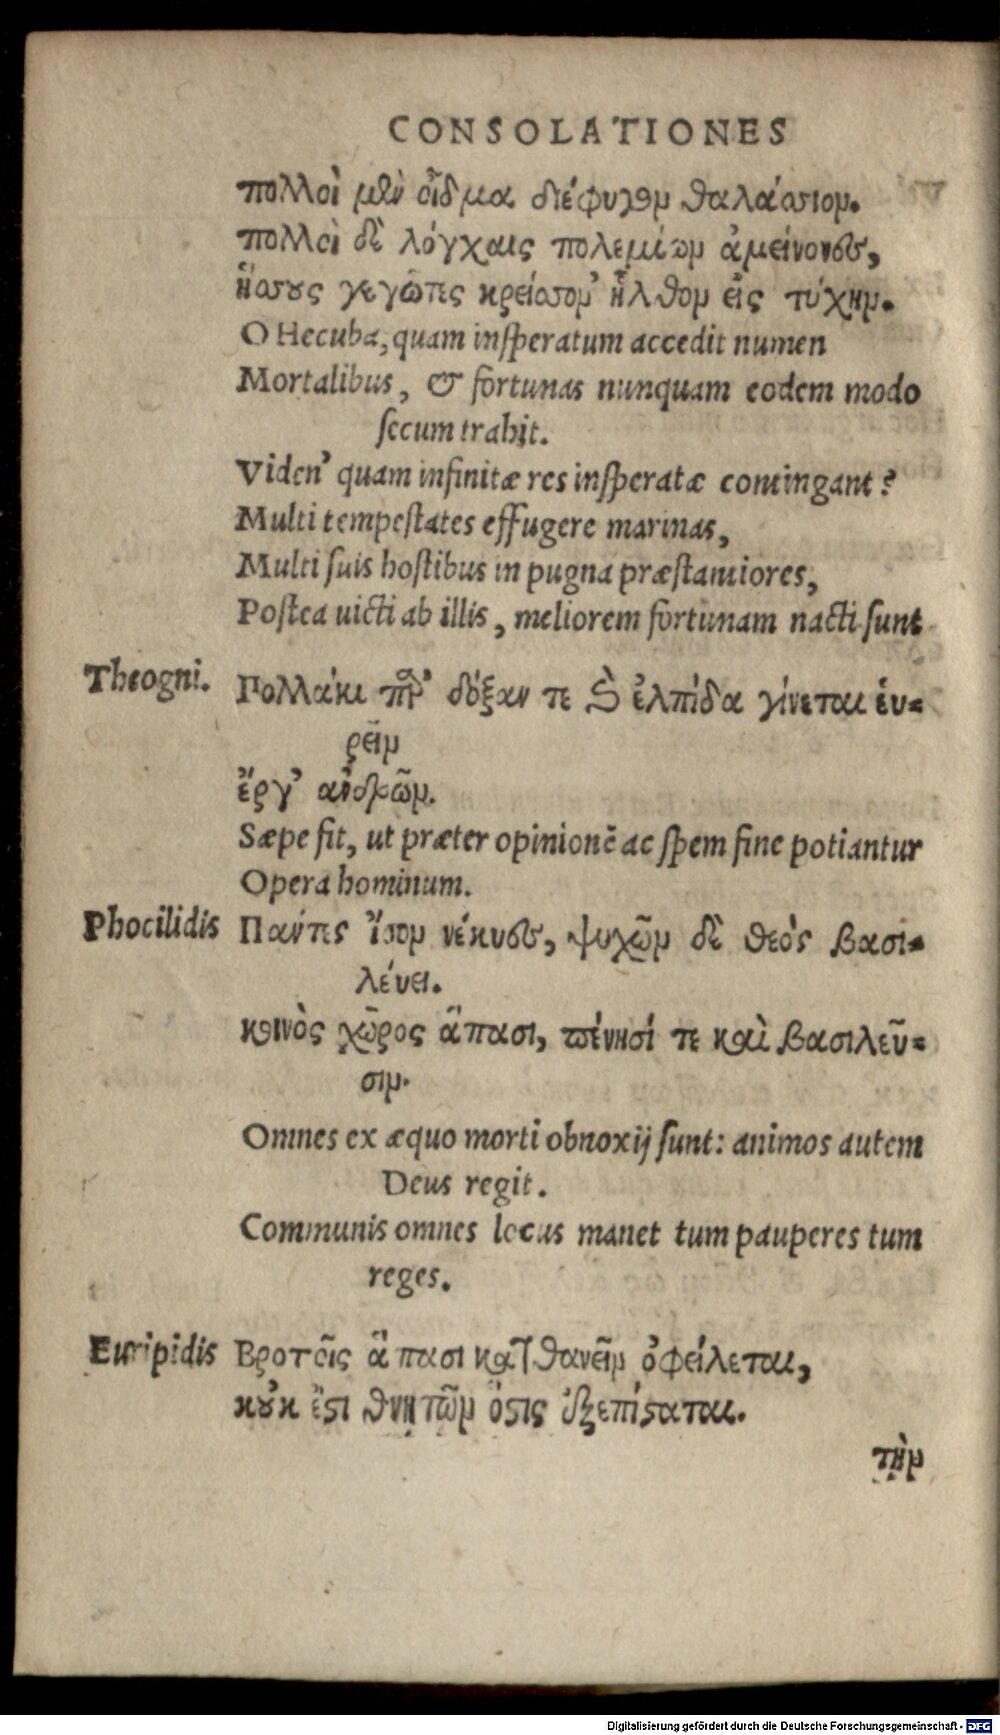 CONSOLATIONES
πολλοὶ μὲν οἶδμα διέφυγον θαλάσσιον.
πολλοὶ δὲ λόγχαις πολεμίων ἀμείνονες,
ἥσσους γεγῶτες κρείσσον' ἦλθον εἰς τύχην.
O Hecuba, quam insperatum accedit numen
Mortalibus, & fortunas nunquam eodem modo
secum trahit.
Viden' quam infinitæ res insperatæ contingant?
Multi tempestates effugere marinas,
Multi suis hostibus in pugna præstantiores,
Postea uicti ab illis, meliorem fortunam nacti sunt
Theogni. Πολλάκι πὰρ' δόξαν τε καὶ ἐλπίδα γίνεται εὑ-
ρεῖν
ἔργ' ἀνδρῶν.
Sæpe fit, ut præter opinionē ac spem fine potiantur
Opera hominum.
Phocilidis Πάντες ἴσον νέκυες, ψυχῶν δὲ θεὸς βασι-
λέυει.
κοινὸς χῶρος ἅπασι, πένησί τε καὶ βασιλεῦ-
σιν.
Omnes ex æquo morti obnoxij sunt: animos autem
Deus regit.
Communis omnes locus manet tum pauperes tum
reges.
Euripidis Βροτοῖς ἅπασι κατθανεῖν ὀφείλεται,
κοὐκ ἔστι θνητῶν ὅστις ἐξεπίσταται.
τὴν
Digitalisierung gefördert durch die Deutsche Forschungsgemeinschaft - DFG